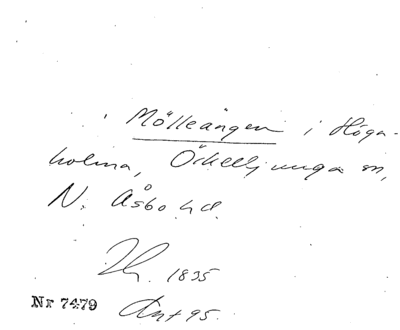 Mölleängen i Höga-
holma, Örkelljunga sn,
N. Åsbo hd.
Th. 1835
Nr 7479
Ant 95.